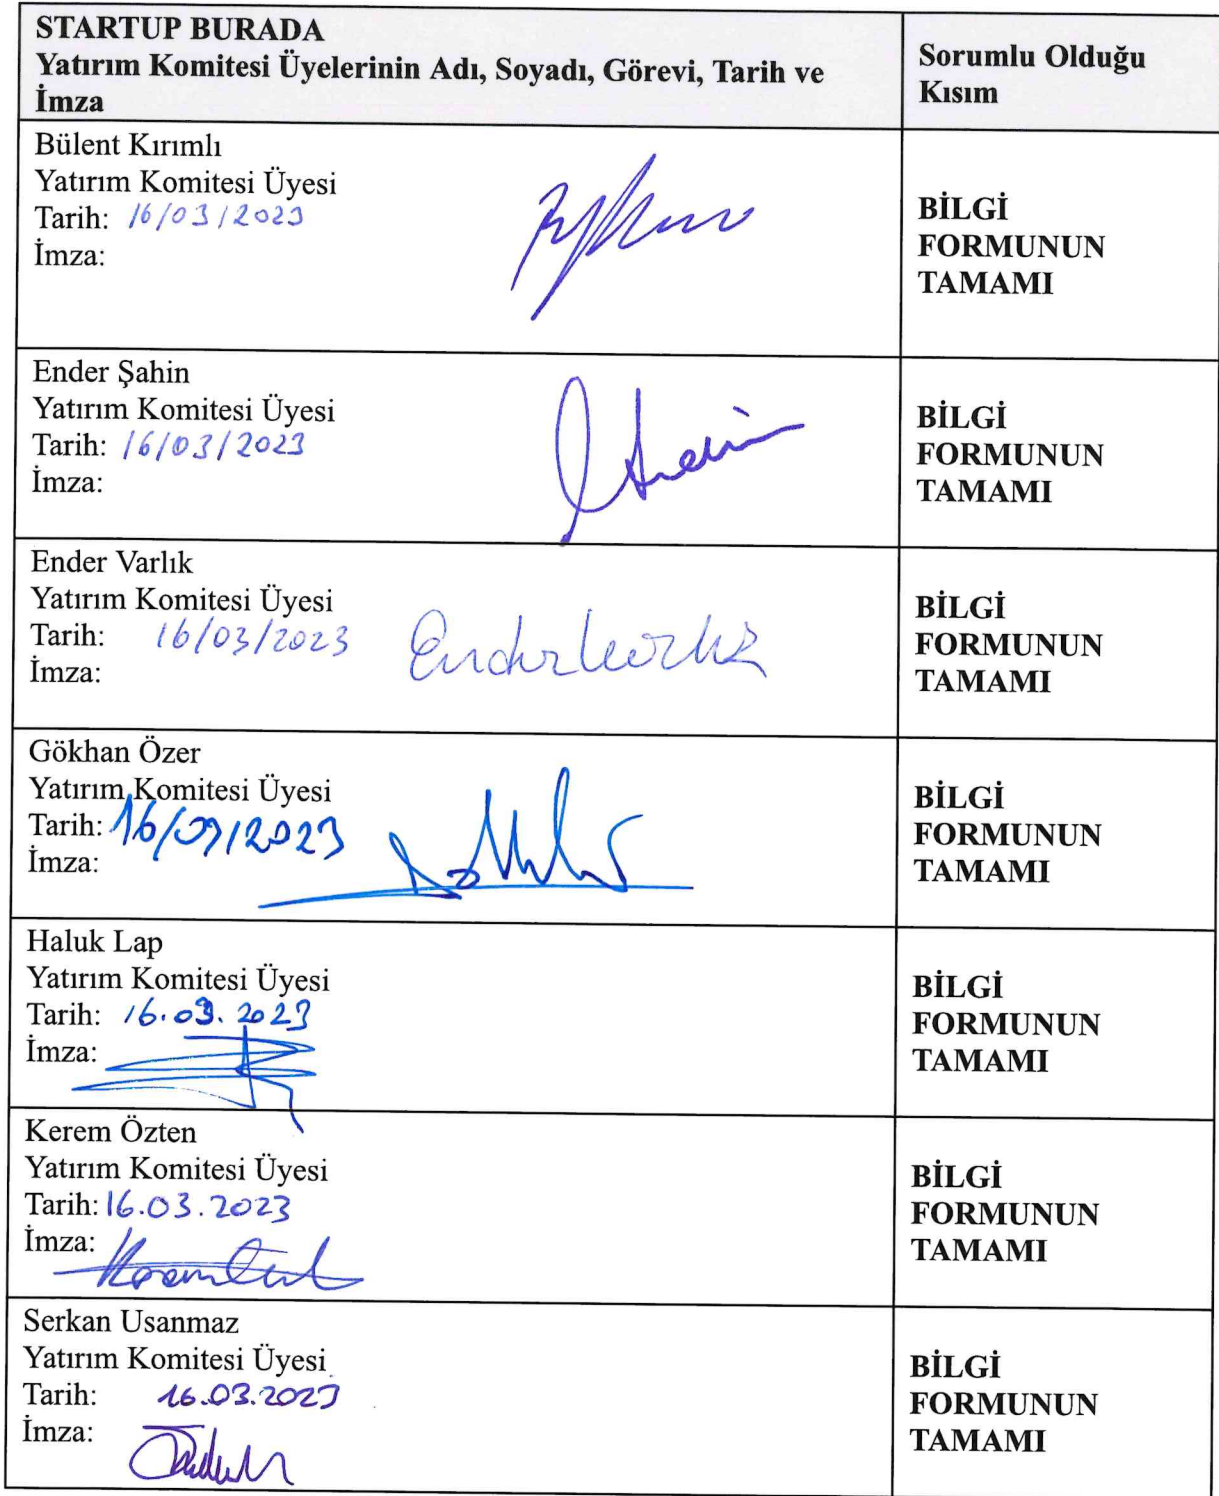 STARTUP BURADA
Yatırım Komitesi Üyelerinin Adı, Soyadı, Görevi, Tarih ve
İmza
Sorumlu Olduğu
Kısım
Bülent Kırımlı
Yatırım Komitesi Üyesi
Tarih: 16/03/2023
İmza:
BİLGİ
FORMUNUN
TAMAMI
Ender Şahin
Yatırım Komitesi Üyesi
Tarih: 16/03/2023
İmza:
BİLGİ
FORMUNUN
TAMAMI
Ender Varlık
Yatırım Komitesi Üyesi
Tarih: 16/03/2023
İmza: Ender Varlık
BİLGİ
FORMUNUN
TAMAMI
Gökhan Özer
Yatırım Komitesi Üyesi
Tarih: 16/03/2023
İmza:
BİLGİ
FORMUNUN
TAMAMI
Haluk Lap
Yatırım Komitesi Üyesi
Tarih: 16.03.2023
İmza:
BİLGİ
FORMUNUN
TAMAMI
Kerem Özten
Yatırım Komitesi Üyesi
Tarih: 16.03.2023
İmza:
BİLGİ
FORMUNUN
TAMAMI
Serkan Usanmaz
Yatırım Komitesi Üyesi
Tarih: 16.03.2023
İmza:
BİLGİ
FORMUNUN
TAMAMI